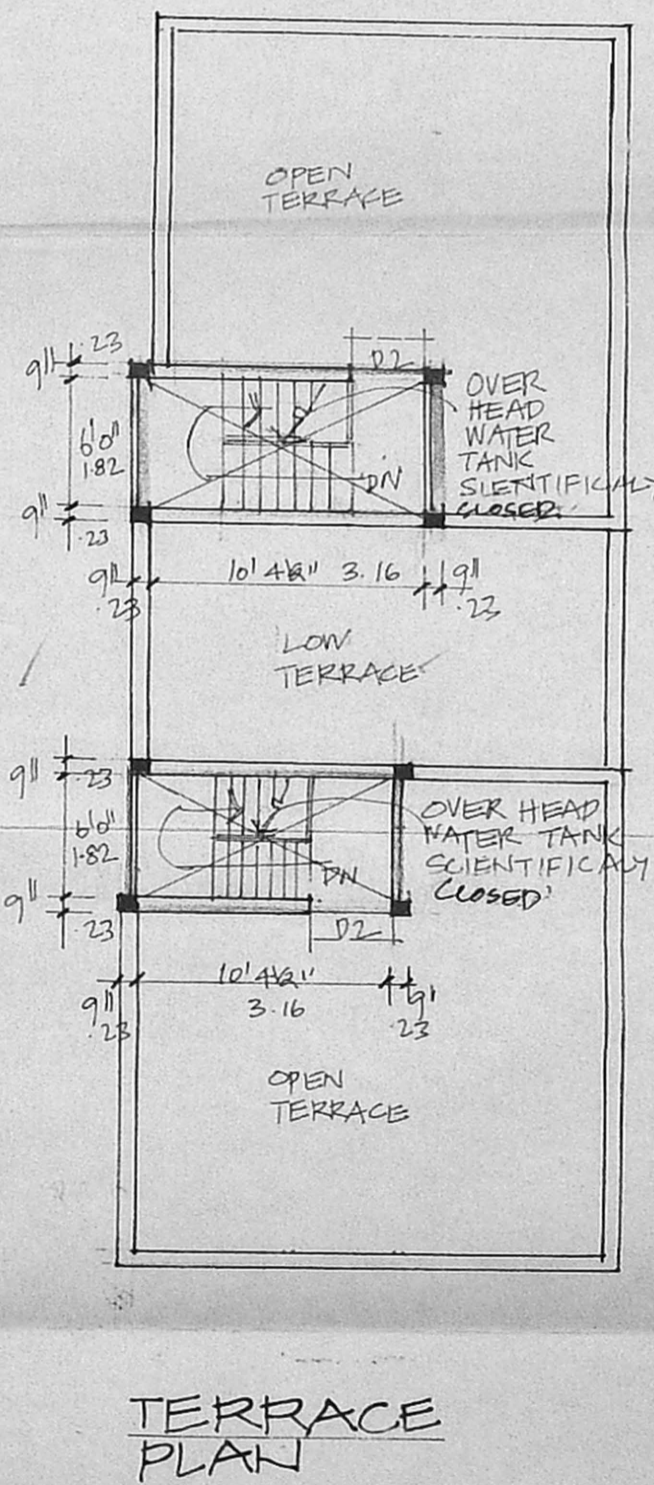 OPEN
TERRACE
9" .23
D2
6'0"
1.82
OVER
HEAD
WATER
TANK
SIENTIFICALY
CLOSED.
DN
9"
.23
9"
.23
10' 4½" 3.16
9"
.23
LOW
TERRACE
9"
.23
6'0"
1.82
OVER HEAD
WATER TANK
SCIENTIFICALY
CLOSED'
DN
9"
.23
D2
9"
.23
10' 4½"
3.16
9'
.23
OPEN
TERRACE
TERRACE
PLAN